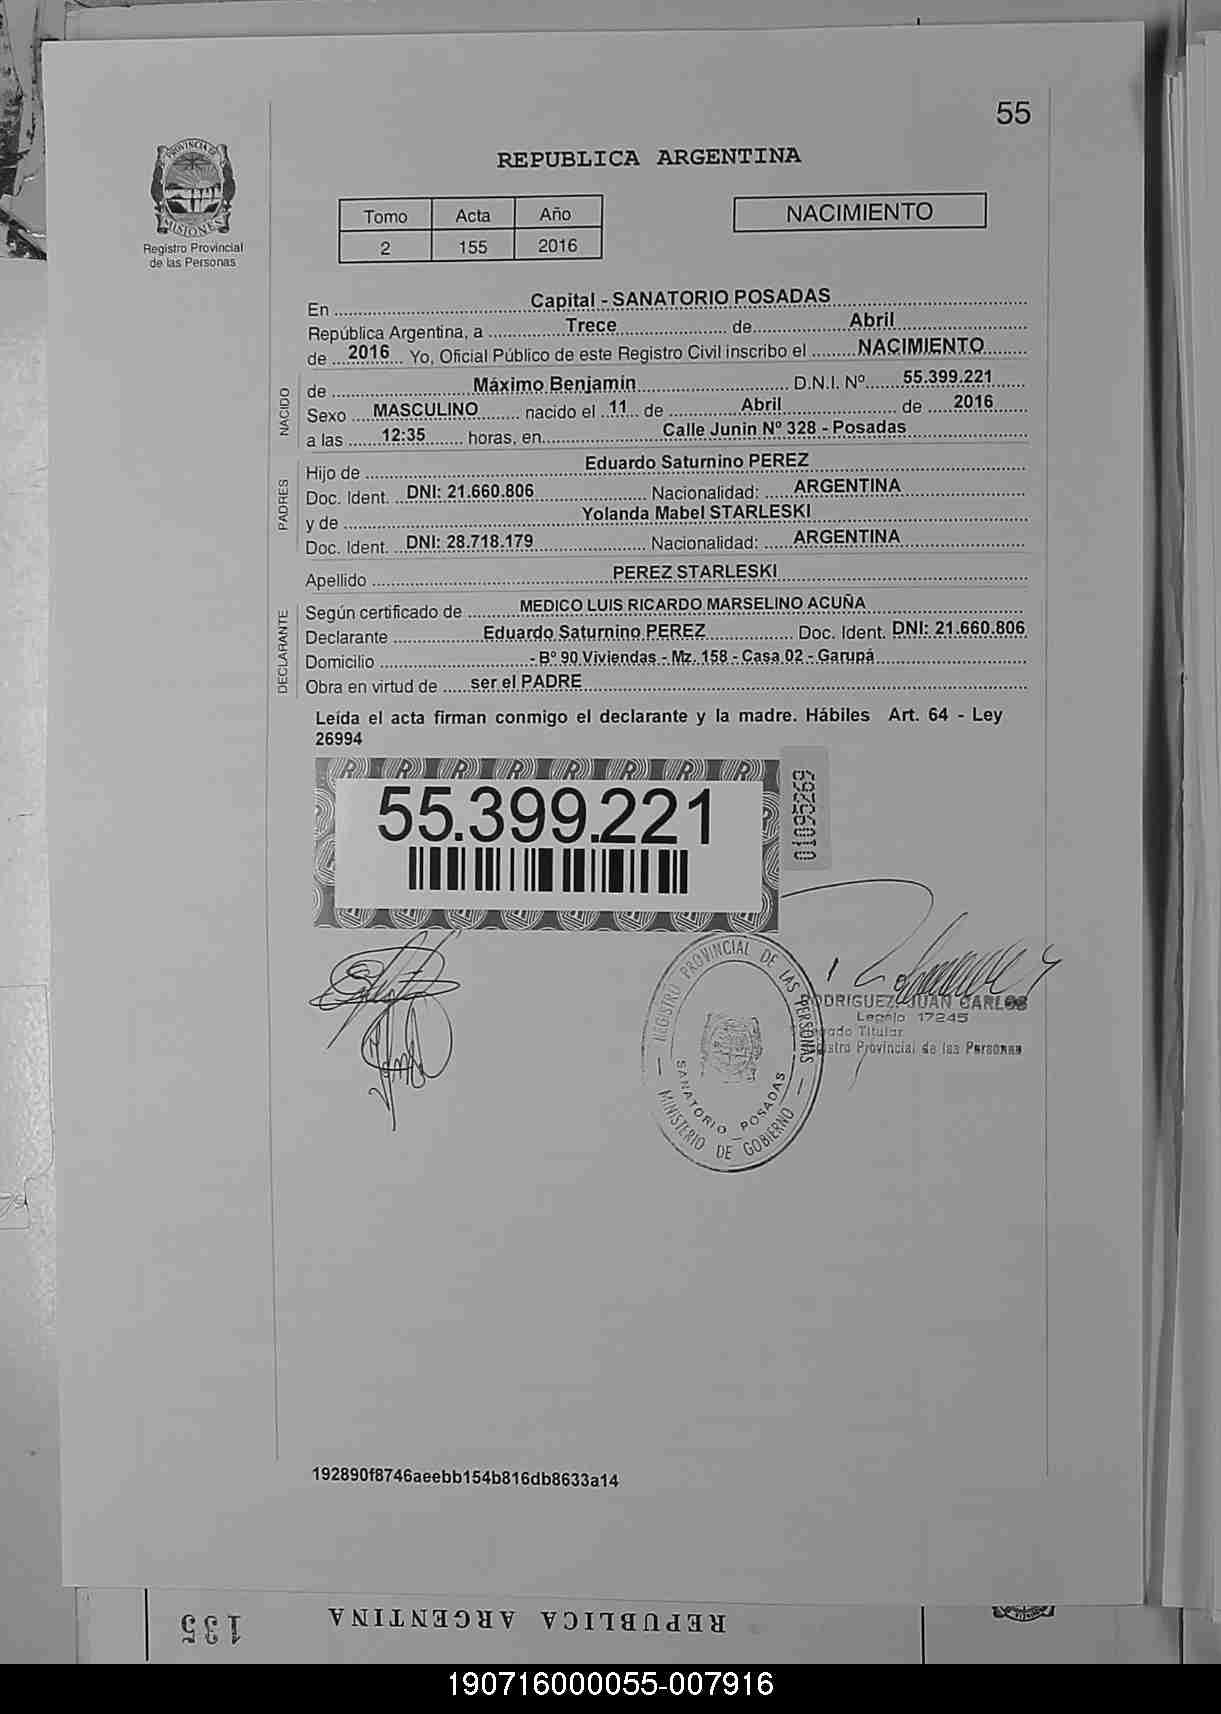 55
PROVINCIA DE
MISIONES
Registro Provincial
de las Personas
REPUBLICA ARGENTINA
Tomo Acta Año
2 155 2016
NACIMIENTO
En Capital - SANATORIO POSADAS
República Argentina, a Trece de Abril
de 2016 Yo, Oficial Público de este Registro Civil inscribo el NACIMIENTO
NACIDO
de Máximo Benjamin D.N.I. Nº 55.399.221
Sexo MASCULINO nacido el 11 de Abril de 2016
a las 12:35 horas, en Calle Junin Nº 328 - Posadas
PADRES
Hijo de Eduardo Saturnino PEREZ
Doc. Ident. DNI: 21.660.806 Nacionalidad: ARGENTINA
y de Yolanda Mabel STARLESKI
Doc. Ident. DNI: 28.718.179 Nacionalidad: ARGENTINA
Apellido PEREZ STARLESKI
DECLARANTE
Según certificado de MEDICO LUIS RICARDO MARSELINO ACUÑA
Declarante Eduardo Saturnino PEREZ Doc. Ident. DNI: 21.660.806
Domicilio - Bº 90 Viviendas - Mz. 158 - Casa 02 - Garupá
Obra en virtud de ser el PADRE
Leída el acta firman conmigo el declarante y la madre. Hábiles Art. 64 - Ley
26994
55.399.221
01095269
REGISTRO PROVINCIAL DE LAS PERSONAS
SANATORIO POSADAS
MINISTERIO DE GOBIERNO
RODRIGUEZ, JUAN CARLOS
Legajo 17245
Titular
Provincial de las Personas
192890f8746aeebb154b816db8633a14
REPUBLICA ARGENTINA
135
190716000055-007916